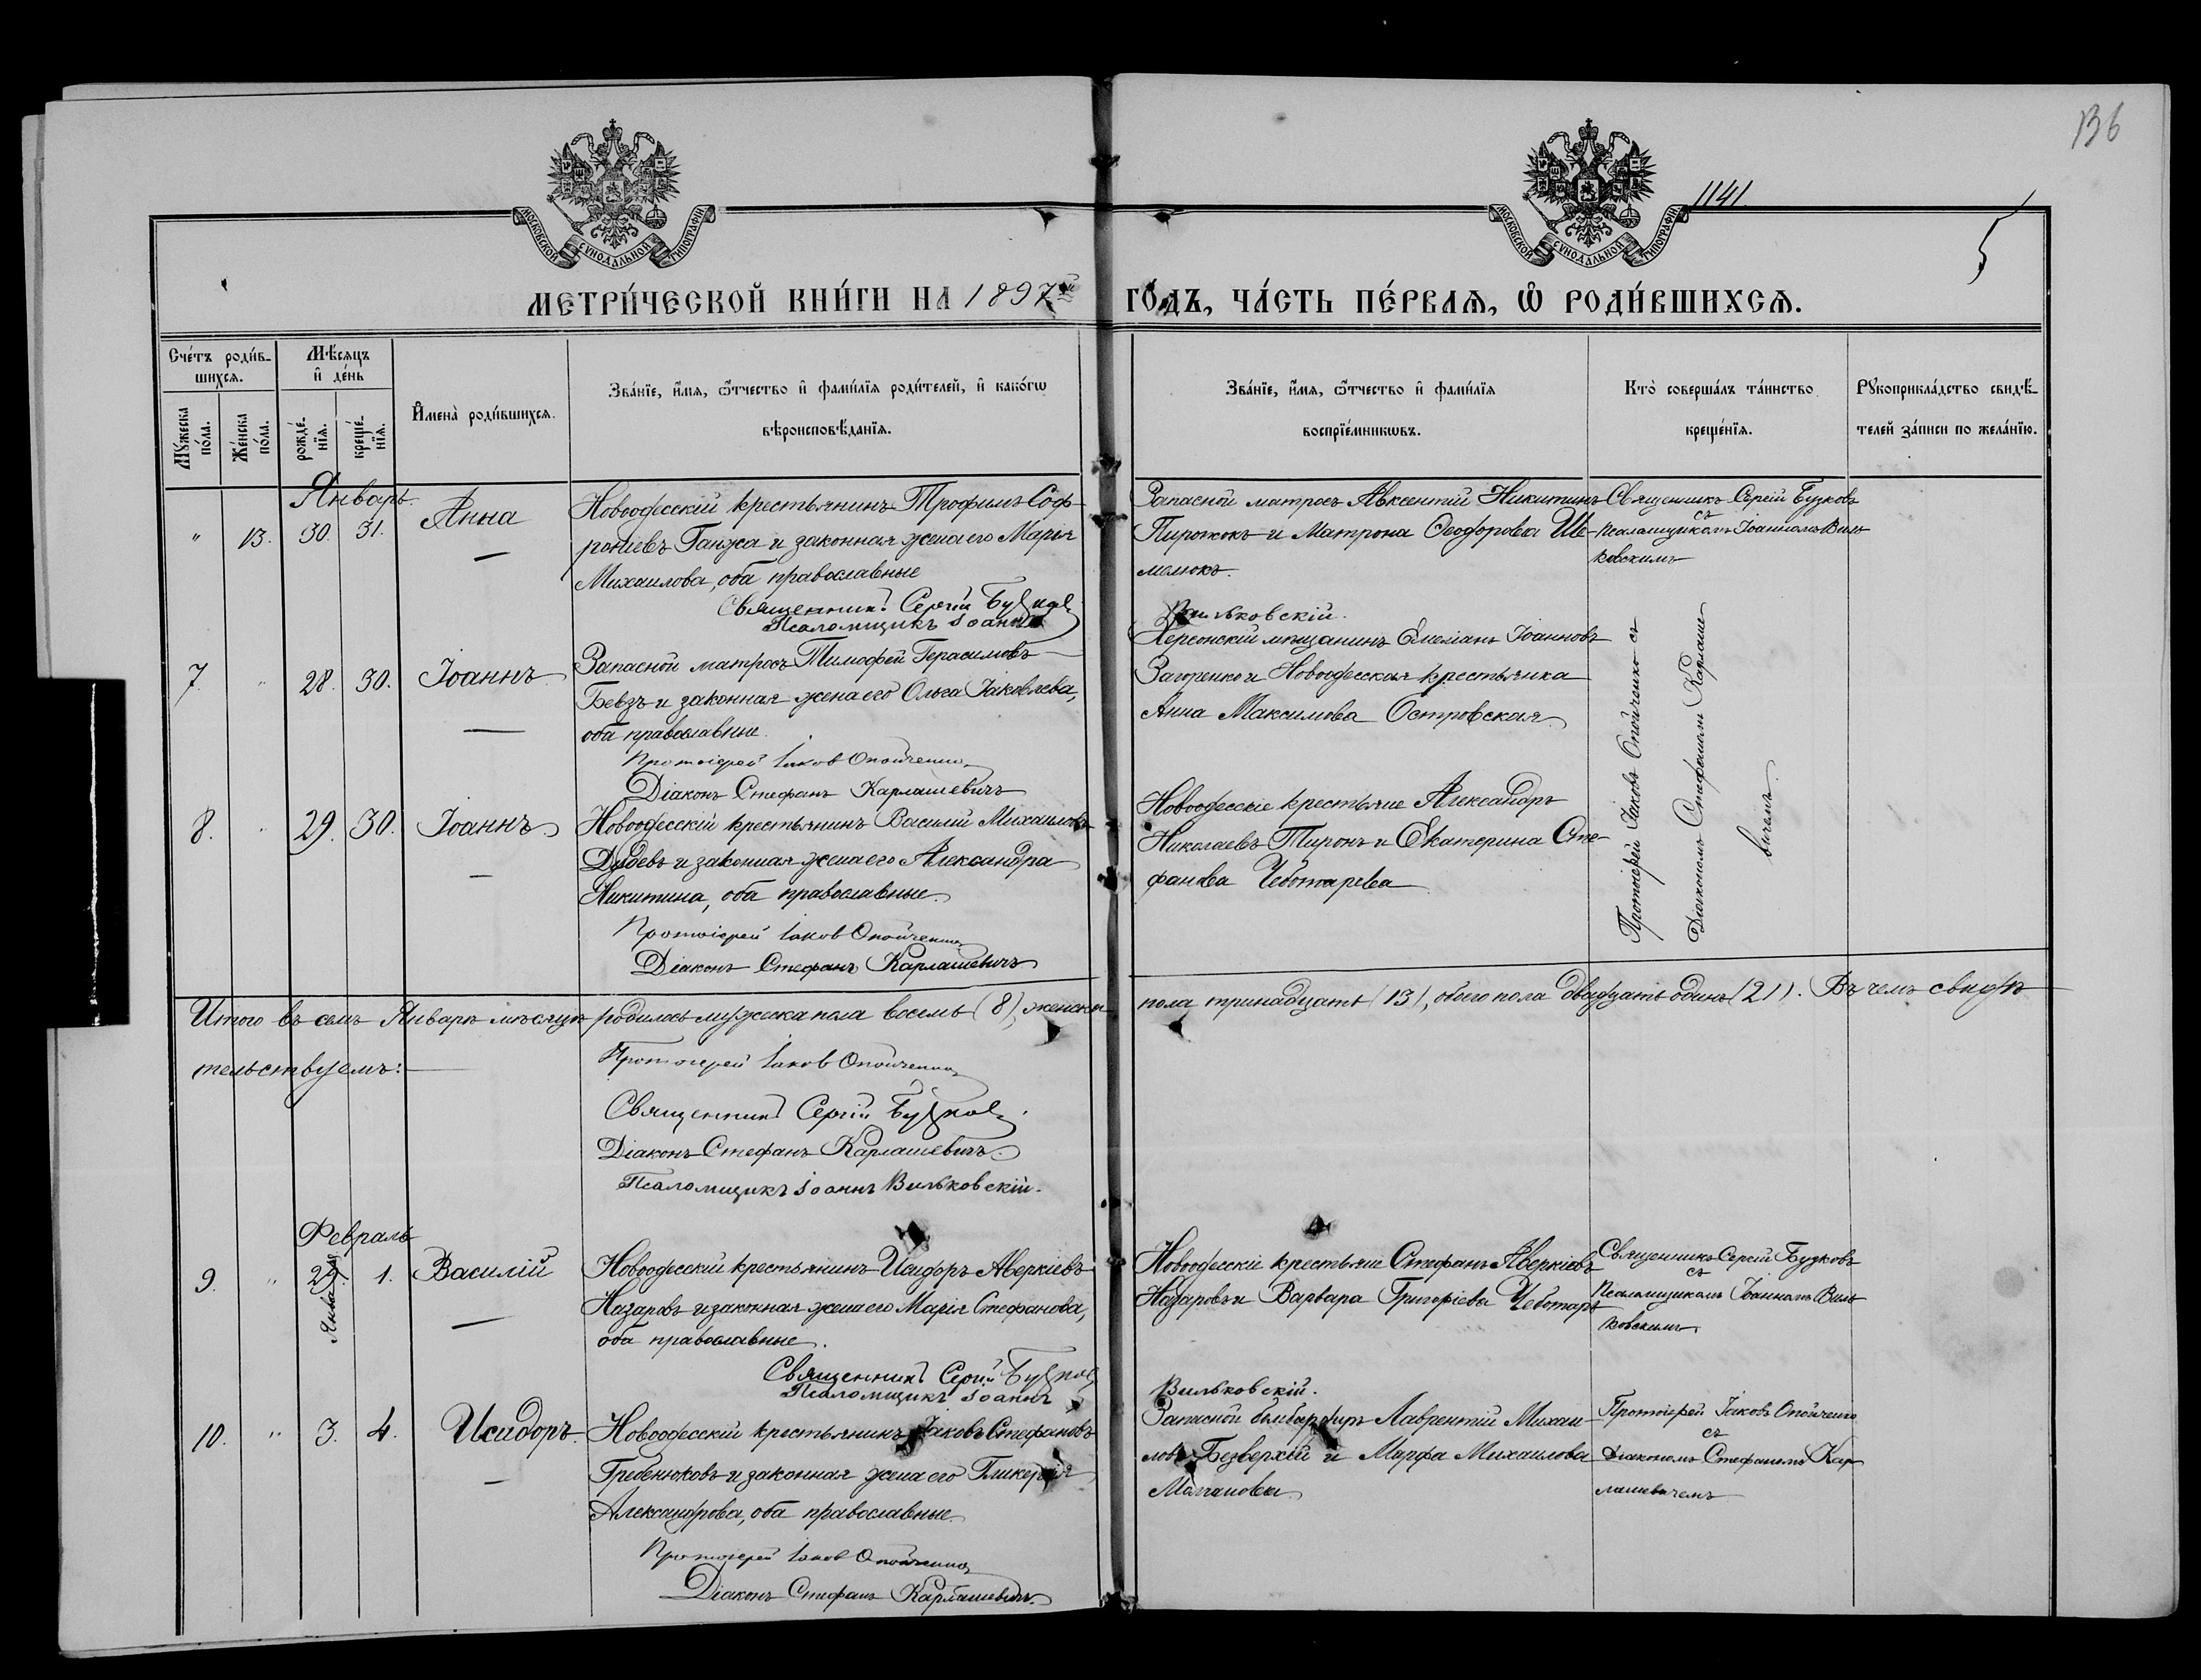 136
1141
5
МОСКОВСКОЙ СУНОДАЛЬНОЙ ТИПОГРАФІИ
МОСКОВСКОЙ СУНОДАЛЬНОЙ ТИПОГРАФІИ
МЕТРИ́ЧЕСКОЙ КНИ́ГИ НА 1897й ГО́ДЪ, ЧА́СТЬ ПЕ́РВАѦ, Ѽ РОДИ́ВШИХСѦ.
Сче́тъ роди́в-
шихсѧ.
Мꙋжеска
по́ла.
Же́нска
по́ла.
Мѣ́сѧцъ
и҆ де́нь
рожде́-
нїѧ.
креще́-
нїѧ.
И҆мена̀ роди́вшихсѧ.
Зва́нїе, и҆́мѧ, ѻ҆́тчество и҆ фами́лїѧ роди́телей, и҆ како́гѡ
вѣроисповѣ́данїѧ.
Зва́нїе, и҆́мѧ, ѻ҆́тчество и҆ фами́лїѧ
воспрїе́мникѡвъ.
Кто̀ соверша́лъ та́инство
креще́нїѧ.
Рꙋкоприкла́дство свидѣ́-
телей за́писи по жела́нїю.
Январь
" 13. 30. 31. Анна
Новоодесскій крестьянинъ Трофимъ Соф-
роніевъ Ганжа и законная жена его Марія
Михаилова, оба православные
Священникъ Сергій Будков
Псаломщикъ Іоаннъ Вильковскій.
Запасной матросъ Авксентій Никитинъ
Пирожокъ и Матрона Феодорова Ше-
мелюкъ.
Священникъ Сергій Будковъ
съ
Псаломщикомъ Іоанномъ Виль-
ковскимъ
7. " 28. 30. Іоаннъ
Запасной матросъ Тимофей Герасимовъ
Бевзъ и законная жена его Ольга Іаковлева,
оба православные.
Протоіерей Іаков Опойченко
Діаконъ Стефанъ Карлашевичъ
Херсонскій мѣщанинъ Емеліанъ Іоанновъ
Загоренко и Новоодесская крестьянка
Анна Максимова Островская
Протоіерей Іаковъ Опойченко съ
Діакономъ Стефаномъ Карлаше-
вичемъ.
8. " 29. 30. Іоаннъ
Новоодесскій крестьянинъ Василій Михаиловъ
Дядевъ и законная жена его Александра
Никитина, оба православные.
Протоіерей Іаков Опойченко
Діаконъ Стефанъ Карлашевичъ
Новоодесскіе крестьяне Александръ
Николаевъ Тиронъ и Екатерина Сте-
фанова Чеботарева
Итого въ семъ Январѣ мѣсяцѣ родилось мужеска пола восемь (8), женска пола тринадцать (13), обоего пола двадцать одинъ (21). Въ чемъ свидѣ-
тельствуемъ:
Протоіерей Іаков Опойченко
Священникъ Сергій Будков
Діаконъ Стефанъ Карлашевичъ
Псаломщикъ Іоаннъ Вильковскій.
Февраль
9. " 29. Января 1. Василій
Новоодесскій крестьянинъ Исидоръ Аверкіевъ
Назаровъ и законная жена его Марія Стефанова,
оба православные.
Священникъ Сергій Будков
Псаломщикъ Іоаннъ Вильковскій.
Новоодесскіе крестьяне Стефанъ Аверкіевъ
Назаровъ и Варвара Григоріева Чеботарь
Священникъ Сергій Будковъ
съ
Псаломщикомъ Іоанномъ Виль-
ковскимъ
10. " 3. 4. Исидоръ
Новоодесскій крестьянинъ Іаковъ Стефановъ
Гребенюковъ и законная жена его Гликерія
Александрова, оба православные.
Протоіерей Іаков Опойченко
Діаконъ Стефанъ Карлашевичъ
Запасной бомбардиръ Лаврентій Михаи-
ловъ Безверхій и Марфа Михаилова
Молчанова
Протоіерей Іаковъ Опойченко
съ
Діакономъ Стефаномъ Кар-
лашевичемъ